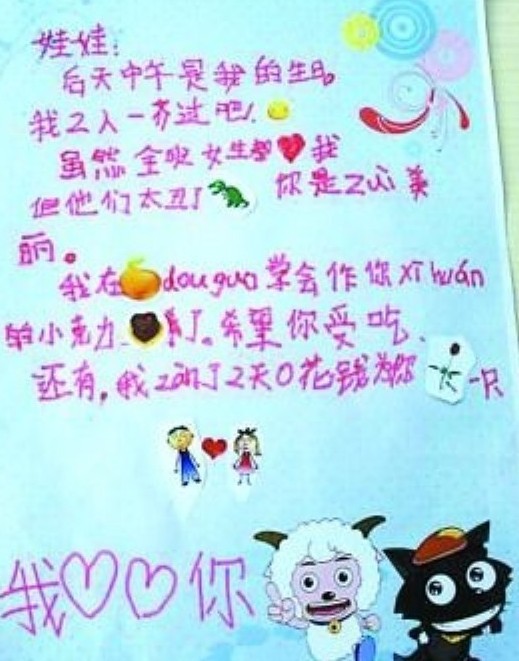 娃娃:
后天中午是我的生日。
我2人一齐过吧!
虽然全班女生都我
但他们太丑了 你是Zui美
丽。
我在douguo学会作你xǐhuán
的小克力 了。希望你受吃.
还有,我zǎn了2天0花钱为你 一只
我♡♡你